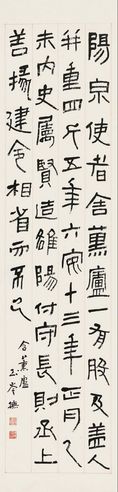 陽泉使者舍薰廬一有股及盖人
并重四斤五年六安十三年正月乙
未内史屬賢造雒陽付守長則丞上
善掾建令相省
舍薰廬